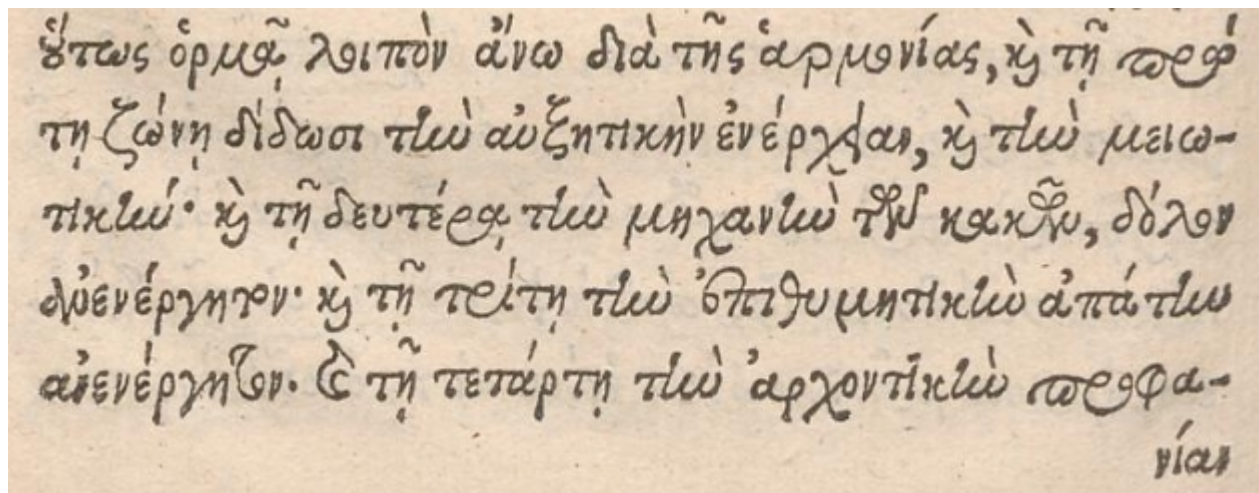 οὕτως ὁρμᾷ λοιπὸν ἄνω διὰ τῆς ἁρμονίας, καὶ τῇ πρώ
τῃ ζώνῃ δίδωσι τὴν αὐξητικὴν ἐνέργειαν, καὶ τὴν μειω-
τικήν· καὶ τῇ δευτέρᾳ τὴν μηχανὴν τῶν κακῶν, δόλον
ἀνενέργητον· καὶ τῇ τρίτῃ τὴν ἐπιθυμητικὴν ἀπάτην
ἀνενέργητον. καὶ τῇ τετάρτῃ τὴν ἀρχοντικὴν προφα-
νίαν